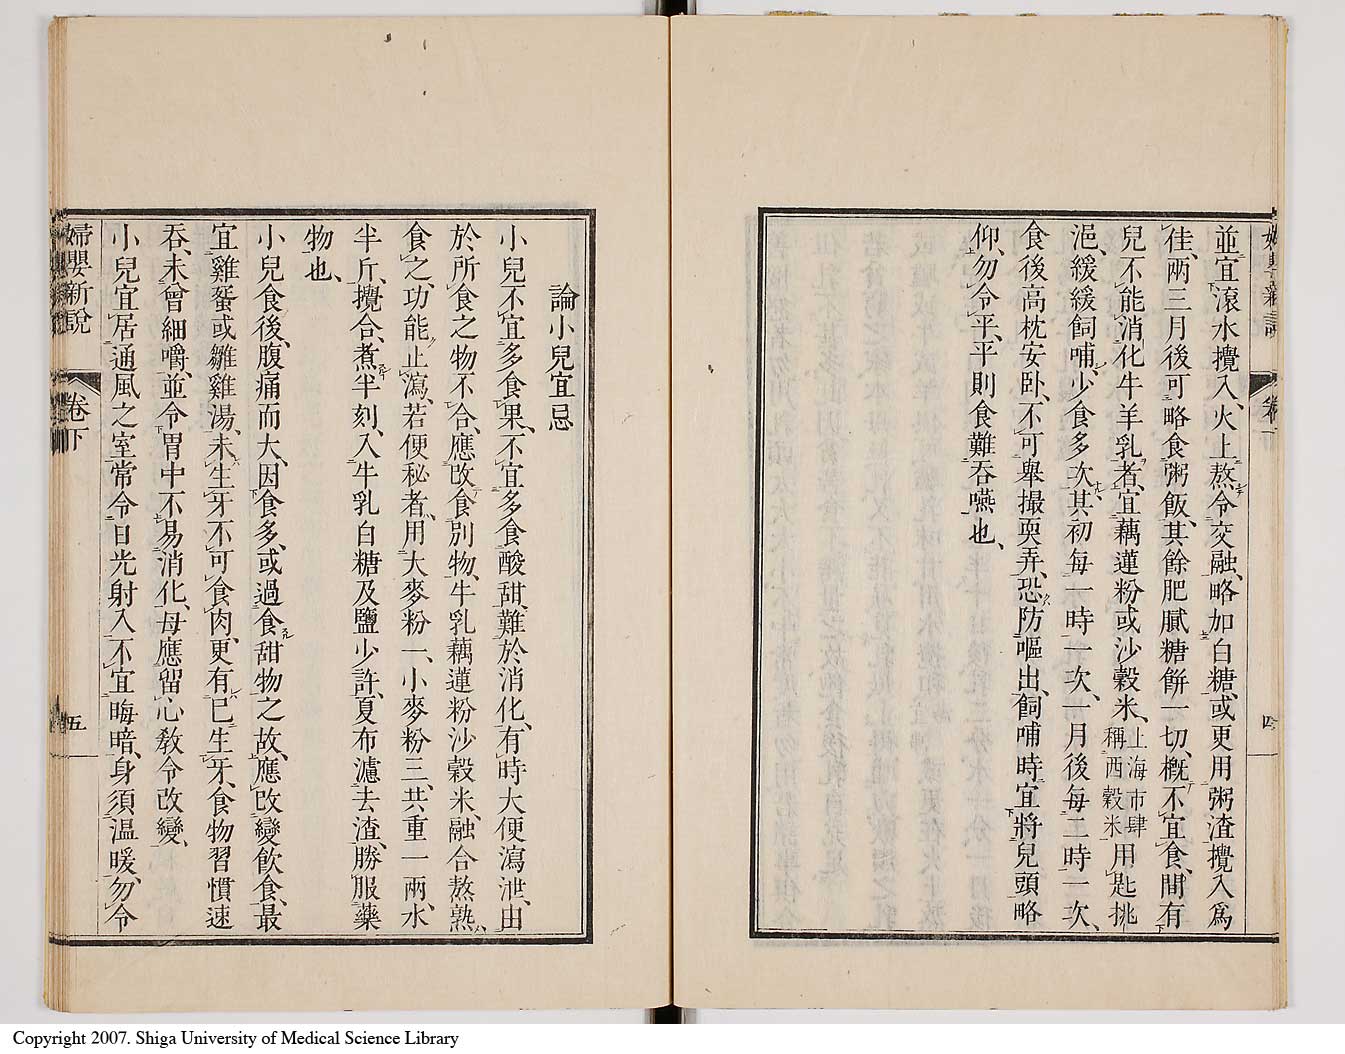 並宜滾水攪入、火上熬、令交融、略加白糖、或更用粥渣攪入爲
佳、兩三月後可略食粥飯、其餘肥膩糖餅一切、概不宜食、間有
兒不能消化牛羊乳者、宜藕蓮粉或沙穀米、上海市肆稱西穀米用匙挑
浥、緩緩飼哺、少食多次、其初每一時一次、一月後每二時一次、
食後高枕安卧、不可舉撮耍弄、恐防嘔出、飼哺時宜將兒頭略
仰、勿令平、平則食難吞嚥也、
四
論小兒宜忌
小兒不宜多食果、不宜多食酸甜、難於消化、有時大便瀉泄、由
於所食之物不合、應改食別物、牛乳藕蓮粉沙穀米、融合熬熟、
食之、功能止瀉、若便秘者、用大麥粉一、小麥粉三、共重一兩、水
半斤、攪合、煮半刻、入牛乳白糖及鹽少許、夏布濾去渣、勝服藥
物也、
小兒食後、腹痛而大、因食多、或過食甜物之故、應改變飲食、最
宜雞蛋或雛雞湯、未生牙不可食肉、更有已生牙、食物習慣速
吞、未曾細嚼、並令胃中不易消化、母應留心教令改變、
小兒宜居通風之室、常令日光射入、不宜晦暗、身須温暖、勿令
婦嬰新說
卷下
五
Copyright 2007. Shiga University of Medical Science Library